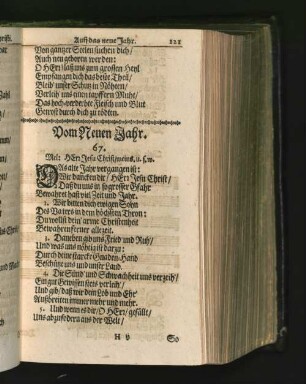 Auff das neue Jahr. 121
Von ganzer Seelen suchen dich/
Auch neu geboren werden:
O HErr laß uns zum grossen Heyl
Empfangen dich das beste Theil/
Bleib unser Schutz in Nöhten/
Verleih uns einen tapffern Muht/
Das hoch-verderbte Fleisch und Blut
Getrost durch dich zu tödten.
Vom Neuen Jahr.
67.
Mel: HErr Jesu Christ meins, u. s. w.
DAs alte Jahr vergangen ist:
Wir dancken dir/ HErr Jesu Christ/
Daß du uns in so grosser Gfahr
Bewahret hast viel Zeit und Jahr.
2. Wir bitten dich ewigen Sohn
Des Vaters in dem höchsten Thron:
Du wollst dein' arme Christenheit
Bewahren ferner allezeit.
3. Daneben gib uns Fried und Ruh/
Und was uns nöhtig ist darzu:
Durch deine starcke Gnaden-Hand
Beschütze uns und unser Land.
4. Die Sünd' und Schwachheit uns verzeih/
Ein gut Gewissen stets verleih/
Und gib/ daß wir dein Lob und Ehr'
Außbreiten immer mehr und mehr.
5. Und wenn es dir/ O HErr/ gefällt/
Uns abzufodern aus der Welt/
H v So